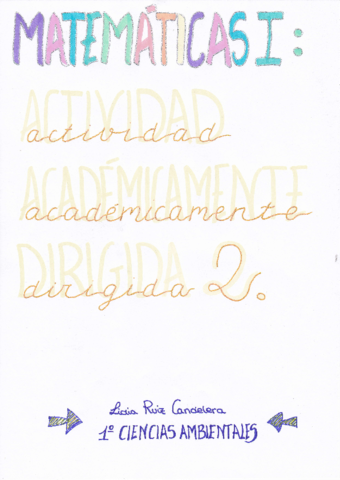 MATEMÁTICAS I:
ACTIVIDAD
actividad
ACADÉMICAMENTE
académicamente
DIRIGIDA
dirigida 2.
Lidia Ruiz Candelera
1º CIENCIAS AMBIENTALES